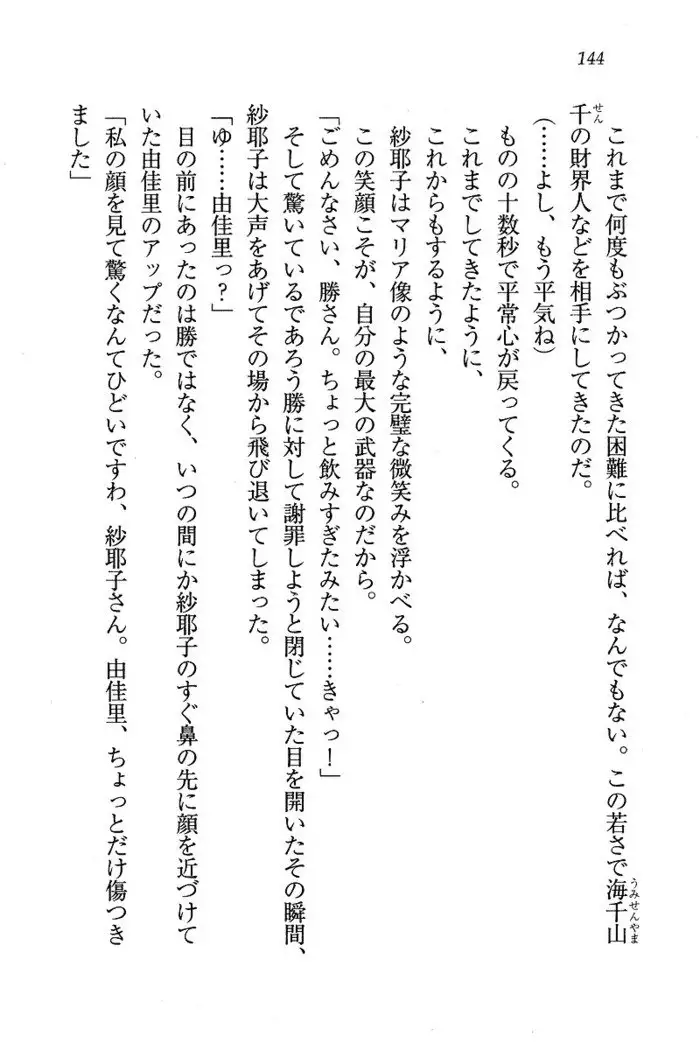 144
これまで何度もぶつかってきた困難に比べれば、なんでもない。この若さで海千山
うみせんやま
千の財界人などを相手にしてきたのだ。
せん
(……よし、もう平気ね)
ものの十数秒で平常心が戻ってくる。
これまでしてきたように、
これからもするように、
紗耶子はマリア像のような完璧な微笑みを浮かべる。
この笑顔こそが、自分の最大の武器なのだから。
「ごめんなさい、勝さん。ちょっと飲みすぎたみたい……きゃっ!」
そして驚いているであろう勝に対して謝罪しようと閉じていた目を開いたその瞬間、
紗耶子は大声をあげてその場から飛び退いてしまった。
「ゆ……由佳里っ?」
目の前にあったのは勝ではなく、いつの間にか紗耶子のすぐ鼻の先に顔を近づけて
いた由佳里のアップだった。
「私の顔を見て驚くなんてひどいですわ、紗耶子さん。由佳里、ちょっとだけ傷つき
ました」